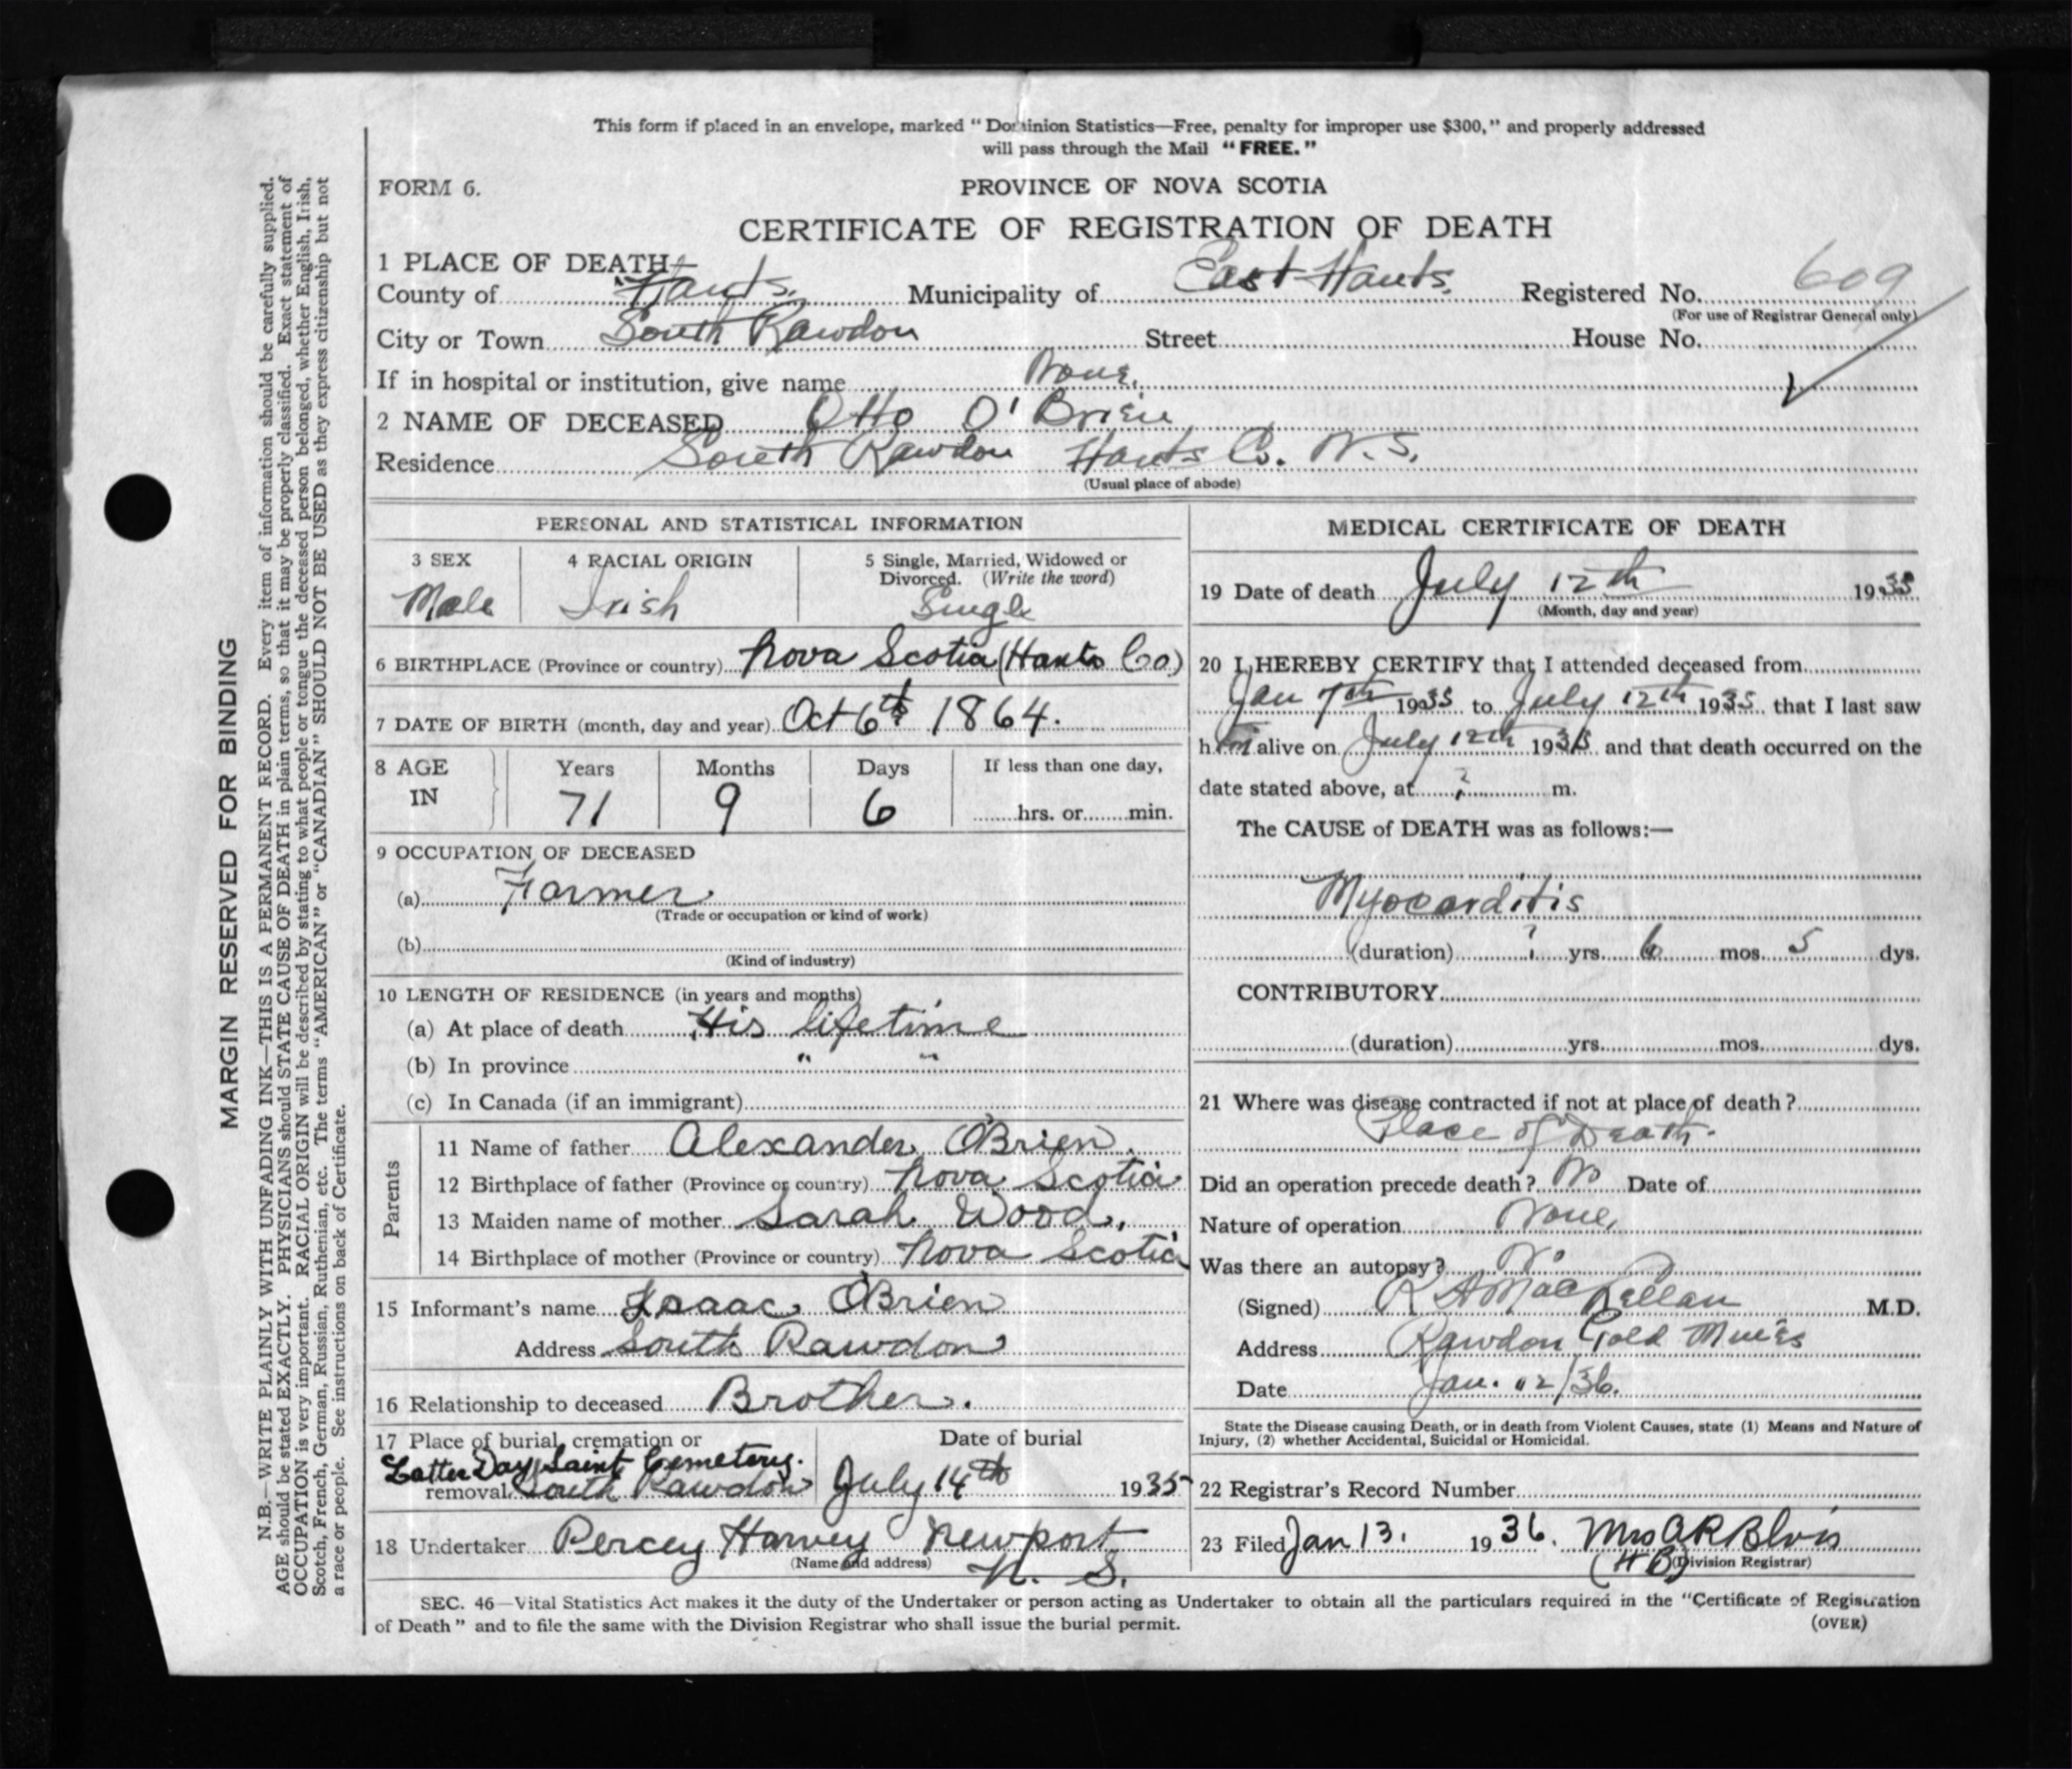 This form if placed in an envelope, marked "Dominion Statistics—Free, penalty for improper use $300," and properly addressed
will pass through the Mail "FREE."
FORM 6.
PROVINCE OF NOVA SCOTIA
CERTIFICATE OF REGISTRATION OF DEATH
1 PLACE OF DEATH—
County of Hants. Municipality of East Hants. Registered No. 609
(For use of Registrar General only)
City or Town South Rawdon Street House No.
If in hospital or institution, give name None.
2 NAME OF DECEASED Otto O'Brien
Residence South Rawdon Hants Co. N.S.
(Usual place of abode)
PERSONAL AND STATISTICAL INFORMATION
3 SEX 4 RACIAL ORIGIN 5 Single, Married, Widowed or
Divorced. (Write the word)
Male Irish Single
6 BIRTHPLACE (Province or country) Nova Scotia (Hants Co.)
7 DATE OF BIRTH (month, day and year) Oct 6th 1864.
8 AGE IN Years Months Days If less than one day,
71 9 6 hrs. or min.
9 OCCUPATION OF DECEASED
(a) Farmer
(Trade or occupation or kind of work)
(b)
(Kind of industry)
10 LENGTH OF RESIDENCE (in years and months)
(a) At place of death His lifetime
(b) In province " "
(c) In Canada (if an immigrant)
Parents
11 Name of father Alexander O'Brien.
12 Birthplace of father (Province or country) Nova Scotia
13 Maiden name of mother Sarah Wood.
14 Birthplace of mother (Province or country) Nova Scotia
15 Informant's name Isaac O'Brien
Address South Rawdon
16 Relationship to deceased Brother.
17 Place of burial, cremation or Date of burial
Latter Day Saint Cemetery.
removal South Rawdon July 14th 1935
18 Undertaker Percey Harvey Newport
(Name and address)
N. S.
MEDICAL CERTIFICATE OF DEATH
19 Date of death July 12th 1935
(Month, day and year)
20 I HEREBY CERTIFY that I attended deceased from
Jan 7th 1935 to July 12th 1935 that I last saw
him alive on July 12th 1935 and that death occurred on the
date stated above, at ? m.
The CAUSE of DEATH was as follows:—
Myocarditis
(duration) ? yrs. 6 mos. 5 dys.
CONTRIBUTORY
(duration) yrs. mos. dys.
21 Where was disease contracted if not at place of death?
Place of Death.
Did an operation precede death? No Date of
Nature of operation None.
Was there an autopsy? No
(Signed) R A MacLellan M.D.
Address Rawdon Gold Mines
Date Jan. 12/36.
State the Disease causing Death, or in death from Violent Causes, state (1) Means and Nature of
Injury, (2) whether Accidental, Suicidal or Homicidal.
22 Registrar's Record Number
23 Filed Jan 13. 1936. Mrs A R Blois
(H B) (Division Registrar)
SEC. 46—Vital Statistics Act makes it the duty of the Undertaker or person acting as Undertaker to obtain all the particulars required in the "Certificate of Registration
of Death" and to file the same with the Division Registrar who shall issue the burial permit.
(OVER)
MARGIN RESERVED FOR BINDING
N.B.—WRITE PLAINLY WITH UNFADING INK—THIS IS A PERMANENT RECORD. Every item of information should be carefully supplied.
AGE should be stated EXACTLY. PHYSICIANS should STATE CAUSE OF DEATH in plain terms, so that it may be properly classified. Exact statement of
OCCUPATION is very important. RACIAL ORIGIN will be described by stating to what people or tongue the deceased person belonged, whether English, Irish,
Scotch, French, German, Russian, Ruthenian, etc. The terms "AMERICAN" or "CANADIAN" SHOULD NOT BE USED as they express citizenship but not
a race or people. See instructions on back of Certificate.